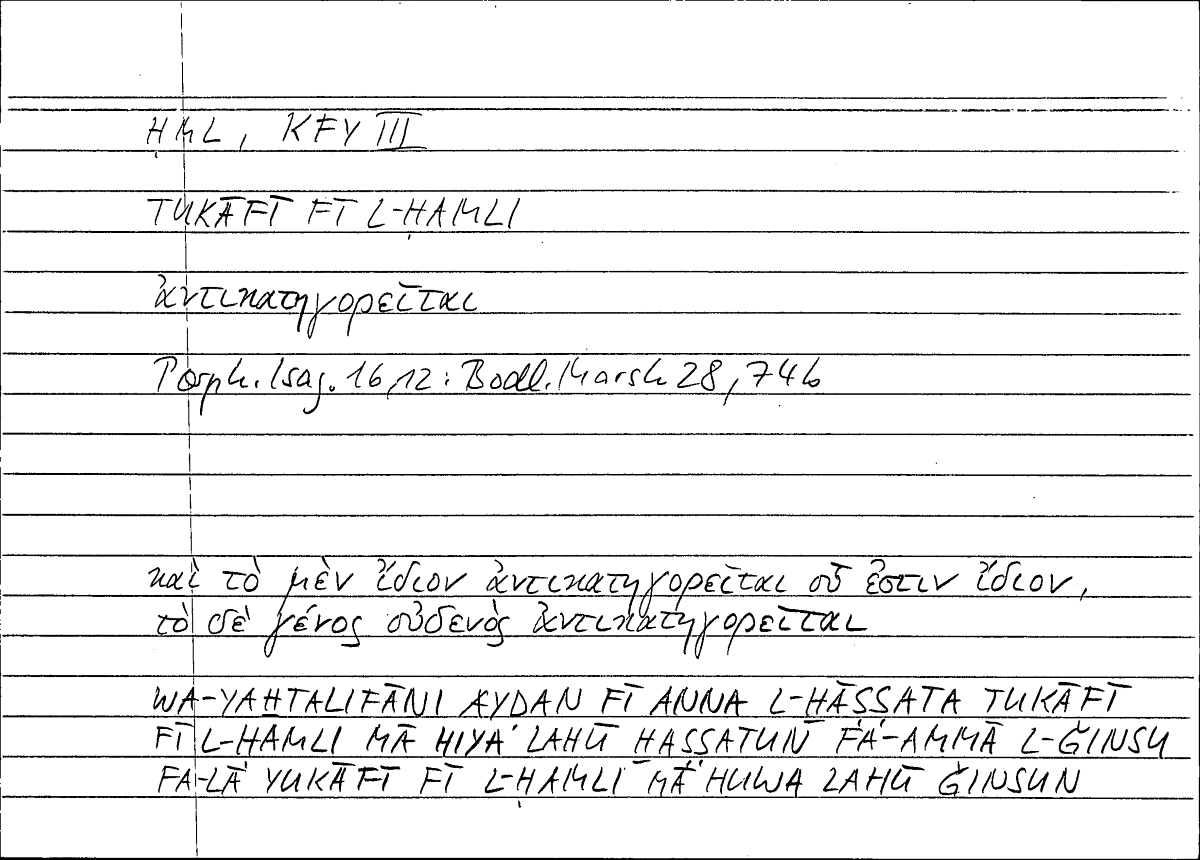 ḤML, KFY III
TUKĀFĪ FĪ L-ḤAMLI
ἀντικατηγορεῖται
Porph. Isag. 16,12: Bodl. Marsh 28, 74b
καὶ τὸ μὲν ἴδιον ἀντικατηγορεῖται οὗ ἐστιν ἴδιον,
τὸ δὲ γένος οὐδενὸς ἀντικατηγορεῖται
WA-YAḪTALIFĀNI AYḌAN FĪ ANNA L-ḪĀṢṢATA TUKĀFĪ
FĪ L-ḤAMLI MĀ HIYA LAHŪ ḪĀṢṢATUN FA-AMMĀ L-ǦINSU
FA-LĀ YUKĀFĪ FĪ L-ḤAMLI MĀ HUWA LAHŪ ǦINSUN